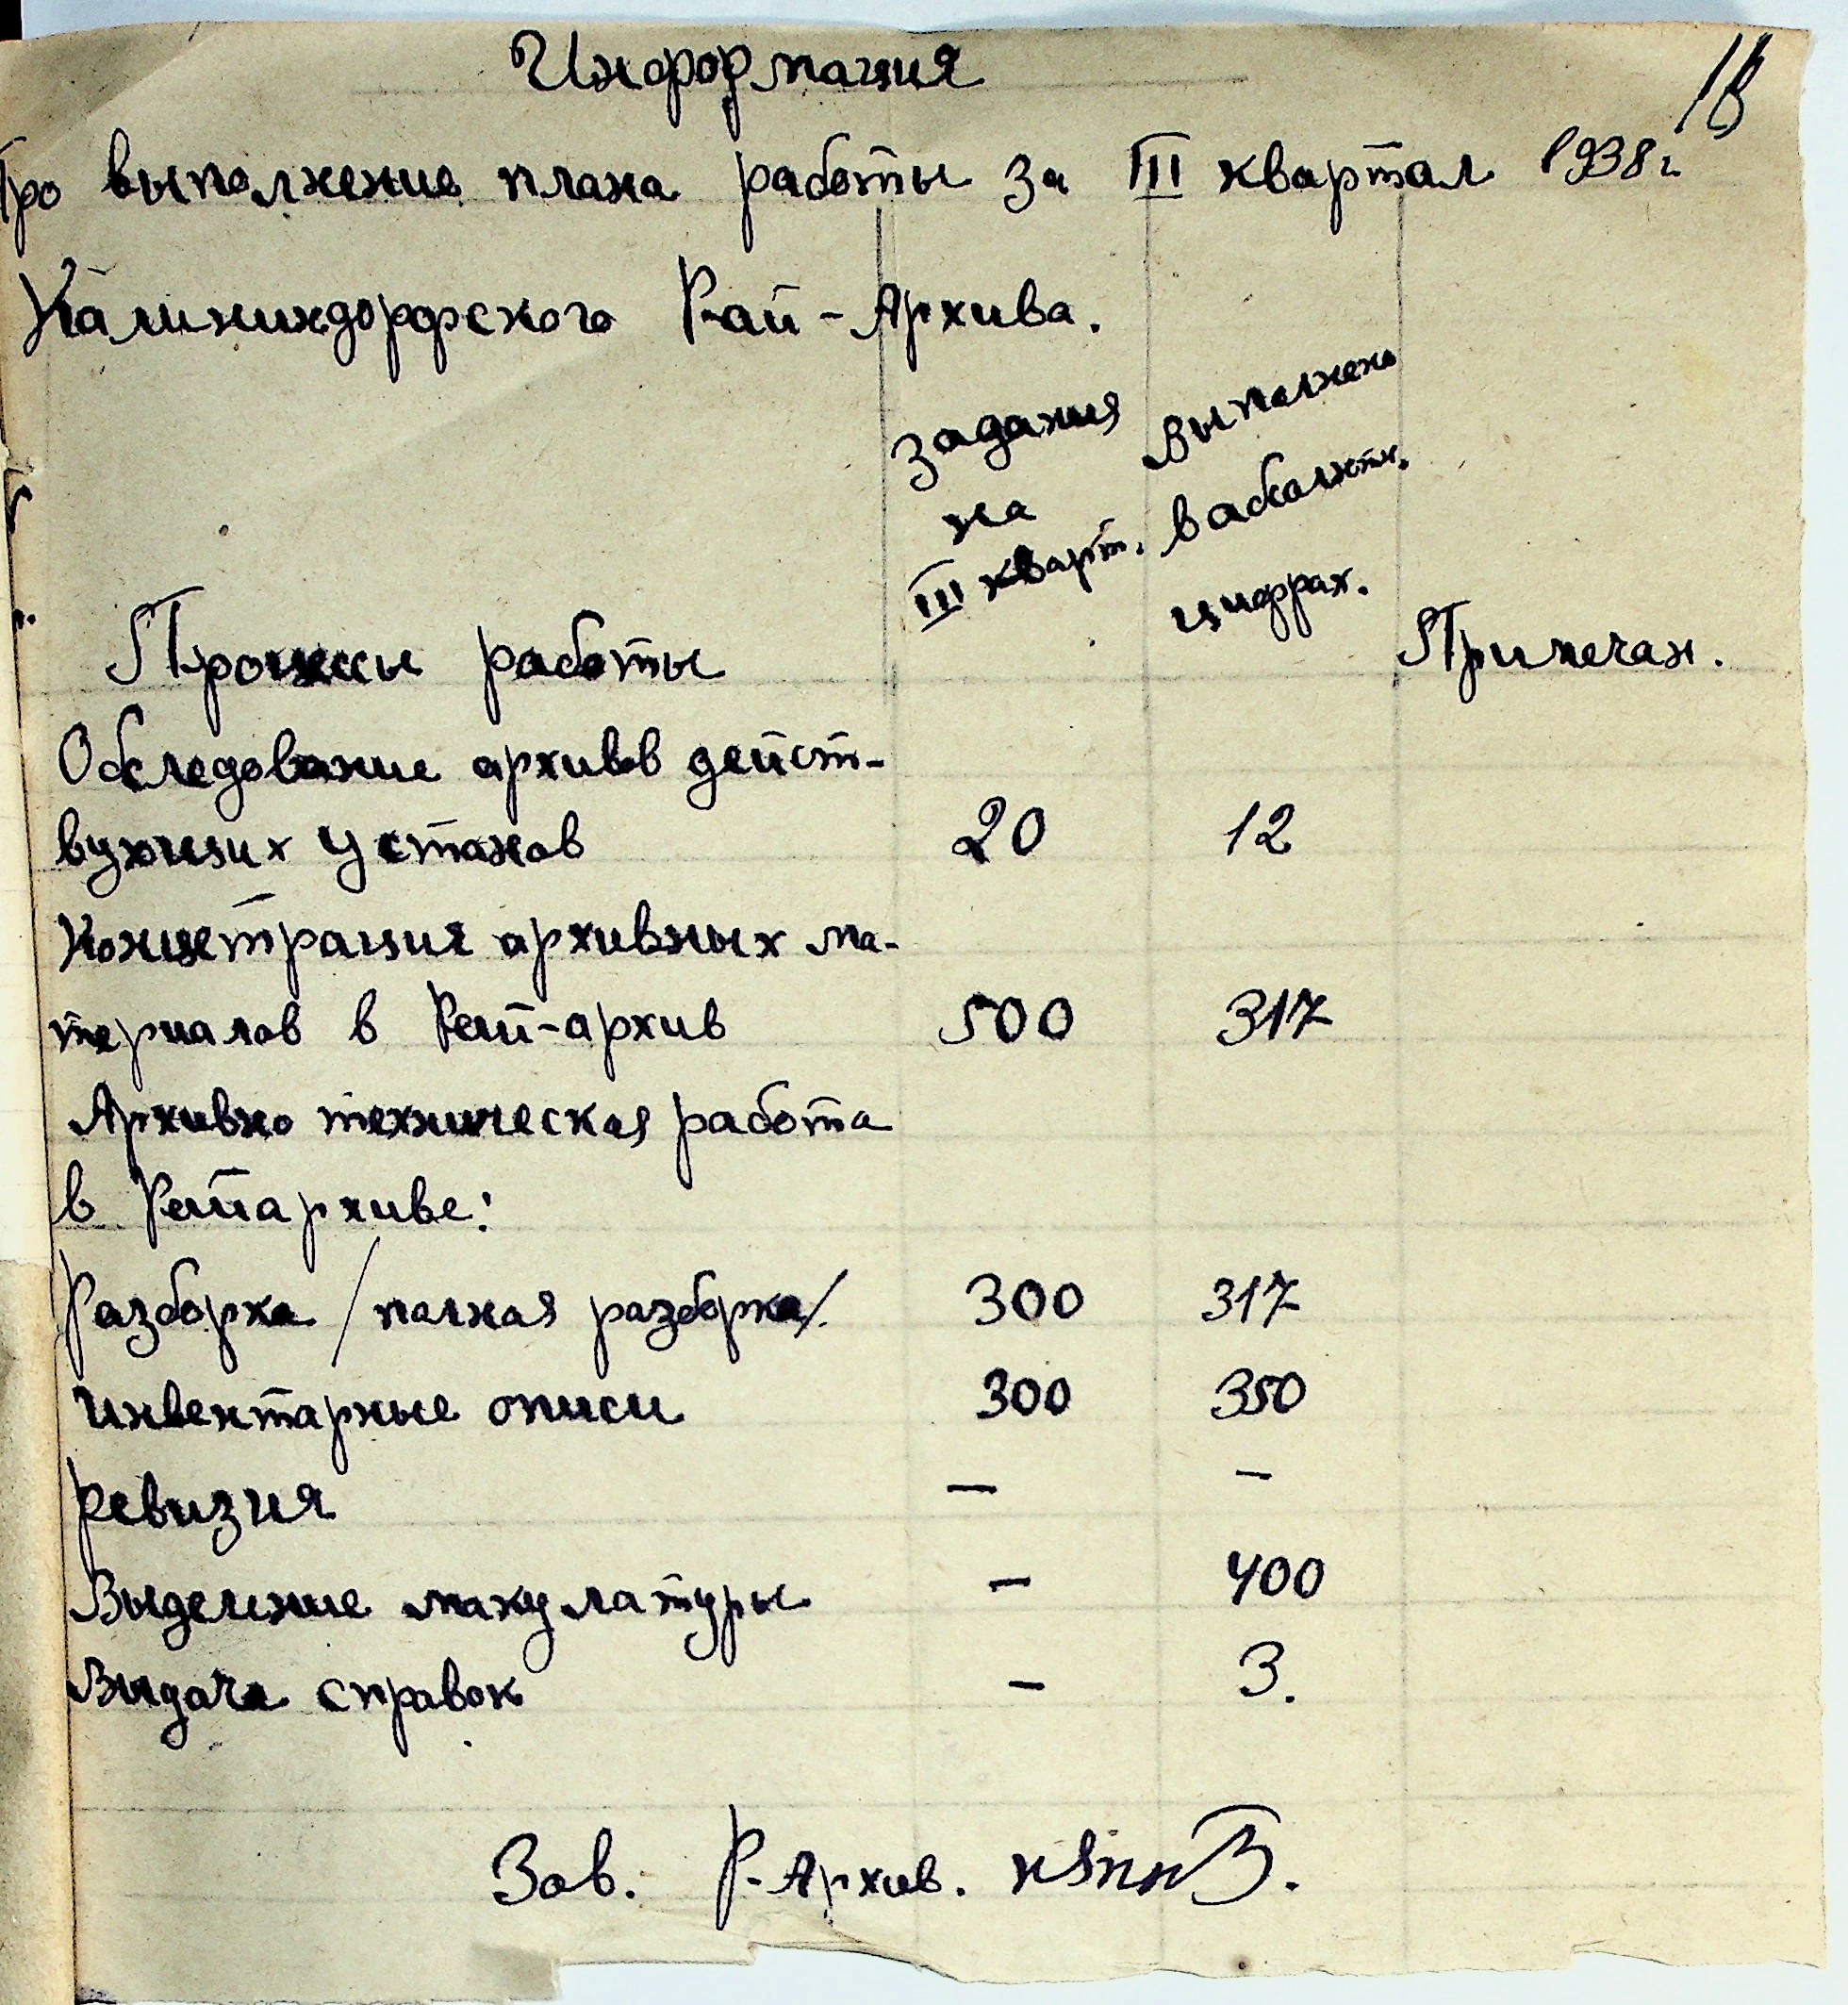 Информация
18
Про выполнение плана работы за III квартал 1938 г.
Калининдорфского Рай-Архива.
Процессы работы
Задания
на
III кварт.
Выполнено
в абсолютн.
цифрах.
Примечан.
Обследование архивов дейст-
вующих установ 20 12
Концетрация архивных ма-
териалов в Рай-архив 500 317
Архивно техническая работа
в Райархиве:
Разборка /полная разборка/. 300 317
Инвентарные описи 300 350
Ревизия — —
Выделение макулатуры — 400
Выдача справок — 3.
Зав. Р-Архив.